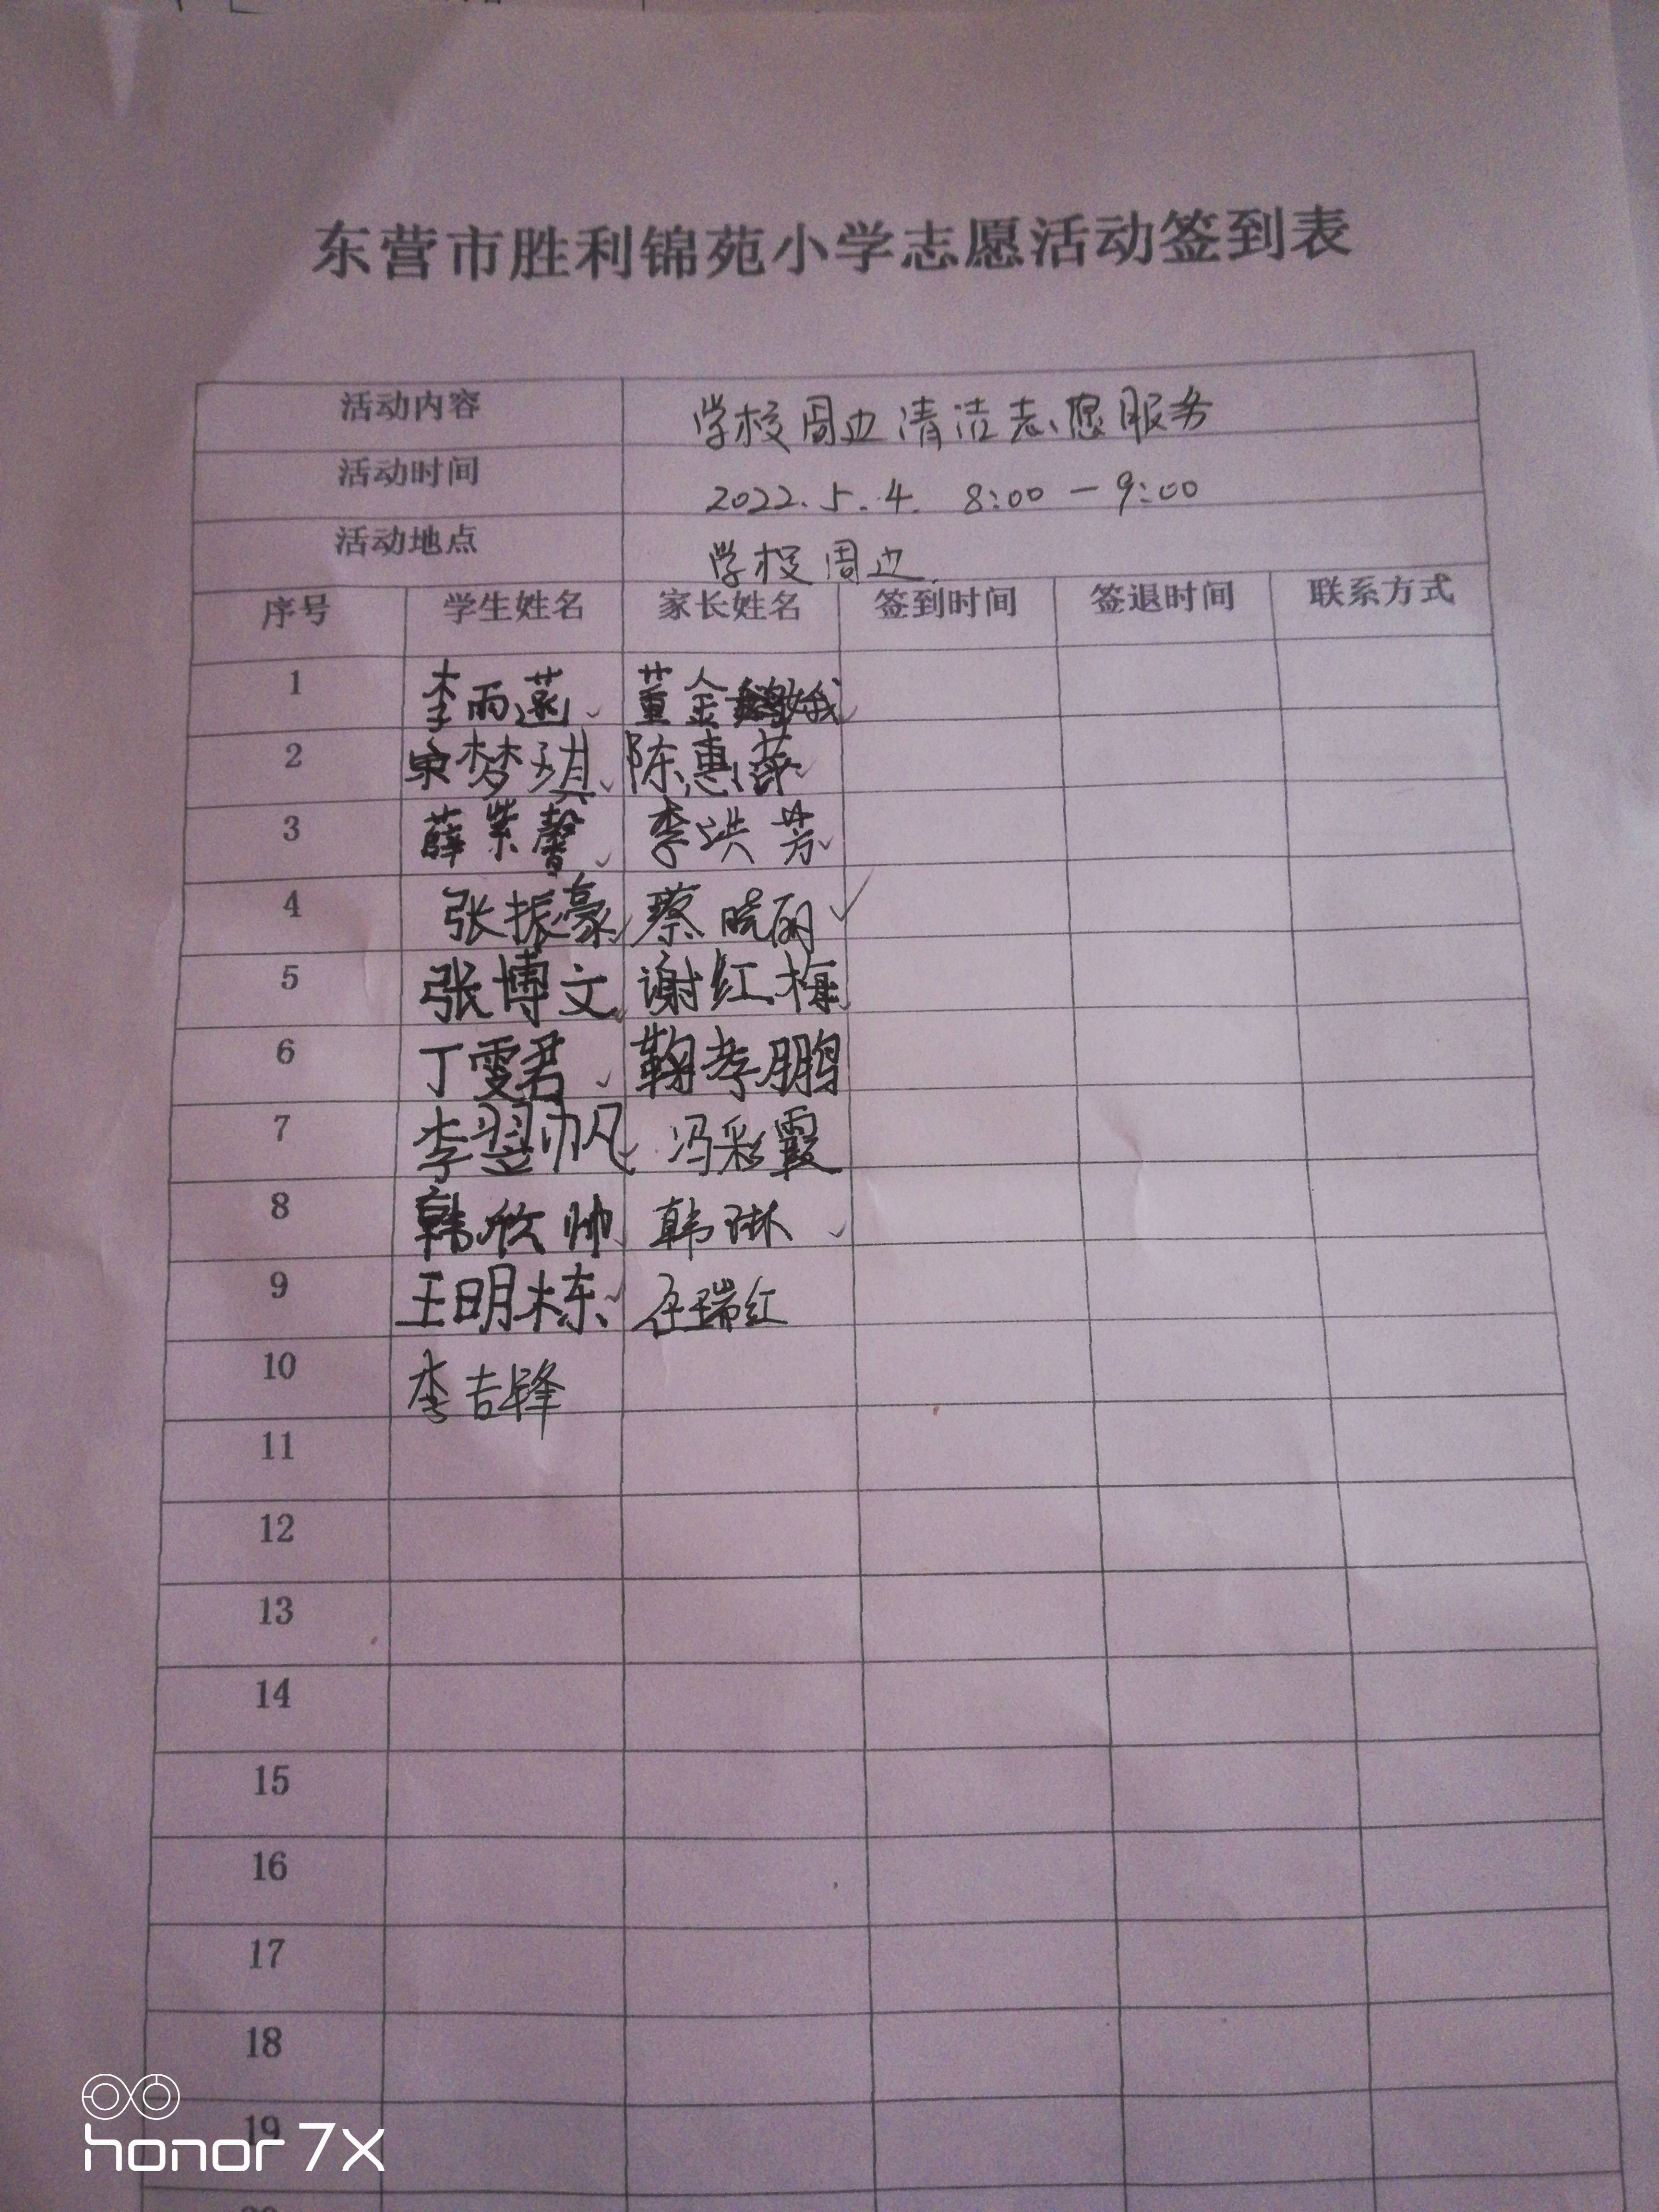 东营市胜利锦苑小学志愿活动签到表
活动内容 学校周边清洁志愿服务
活动时间 2022.5.4. 8:00—9:00
活动地点 学校周边.
序号 学生姓名 家长姓名 签到时间 签退时间 联系方式
1 李雨菡 董金娥
2 宋梦琪 陈惠萍
3 薛紫馨 李洪芳
4 张振豪 蔡晓丽
5 张博文 谢红梅
6 丁雯君 鞠孝鹏
7 李翌帆 冯彩霞
8 韩欣帅 韩琳
9 王明栋 瑞红
10 李吉锋
11
12
13
14
15
16
17
18
19
honor 7X